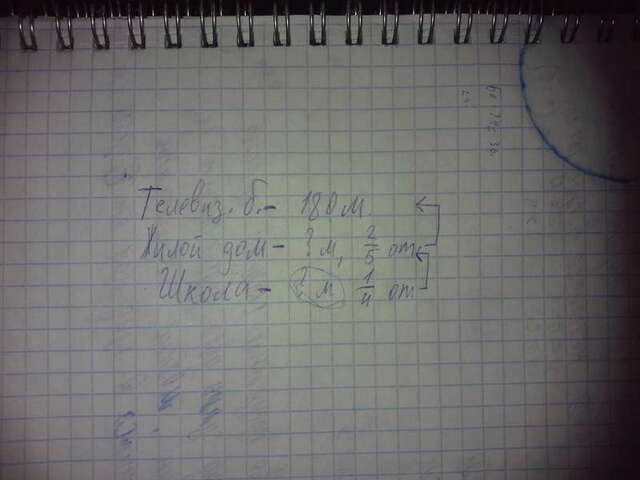 Телевиз. б. - 180 м.
Жилой дом - ? м, 2/5 от
Школа - ? м 1/4 от